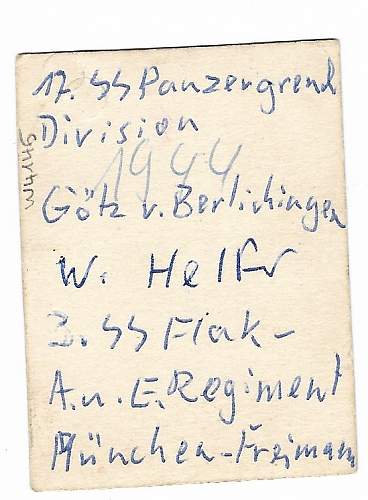 17. SS Panzergrend
Division
1944
Götz v. Berlichingen
W. Helfr
3. SS Flak-
A. u. E. Regiment
München-Freimann
W4145